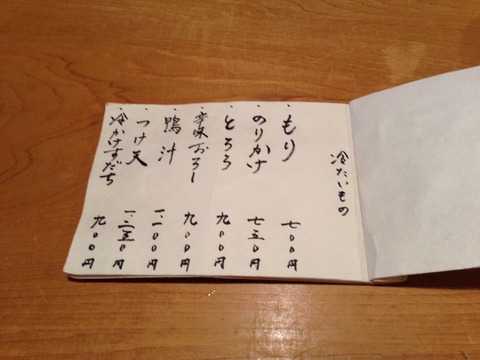 冷たいもの
・もり 七〇〇円
・のりかけ 七五〇円
・とろろ 九〇〇円
・辛味おろし 九〇〇円
・鴨汁 一、一〇〇円
・つけ天 一、三五〇円
・冷かけすだち 九〇〇円